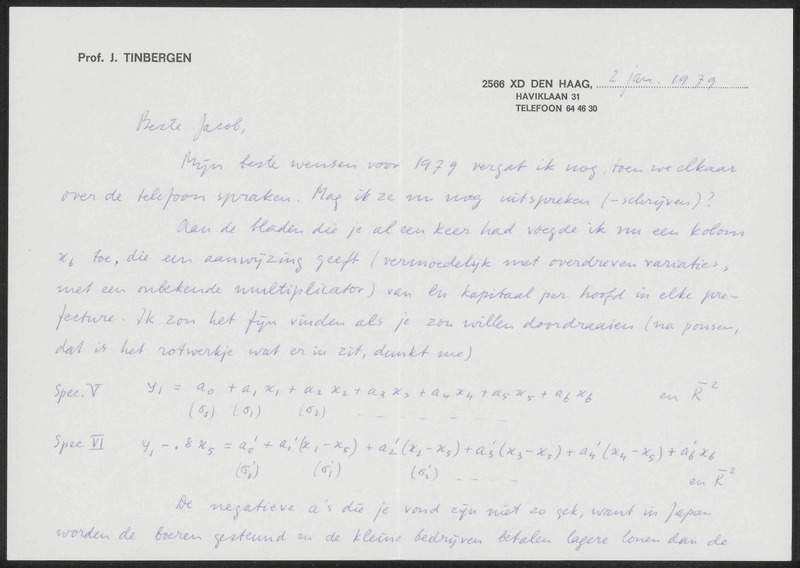 Prof. J. TINBERGEN
2566 XD DEN HAAG, 2 jan. 1979
HAVIKLAAN 31
TELEFOON 64 46 30
Beste Jacob,
Mijn beste wensen voor 1979 vergat ik nog, toen we elkaar
over de telefoon spraken. Mag ik ze nu nog uitspreken (-schrijven)?
Aan de bladen die je al een keer had voegde ik nu een kolom
x6 toe, die een aanwijzing geeft (vermoedelijk met overdreven variaties,
met een onbekende multiplicator) van ln kapitaal per hoofd in elke pre-
fecture. Ik zou het fijn vinden als je zou willen doordraaien (na ponsen,
dat is het rotwerkje wat er in zit, dunkt me)
Spec. V y1 = a0 + a1 x1 + a2 x2 + a3 x3 + a4 x4 + a5 x5 + a6 x6 en R̄²
(σ0) (σ1) (σ2) - - - - - -
Spec VI y1 - .8 x5 = a0' + a1'(x1 - x5) + a2'(x2 - x5) + a3'(x3 - x5) + a4'(x4 - x5) + a6' x6
(σ0') (σ1') (σ2') - - - - en R̄²
De negatieve a's die je vond zijn niet zo gek, want in Japan
worden de boeren gesteund en de kleine bedrijven betalen lagere lonen dan de